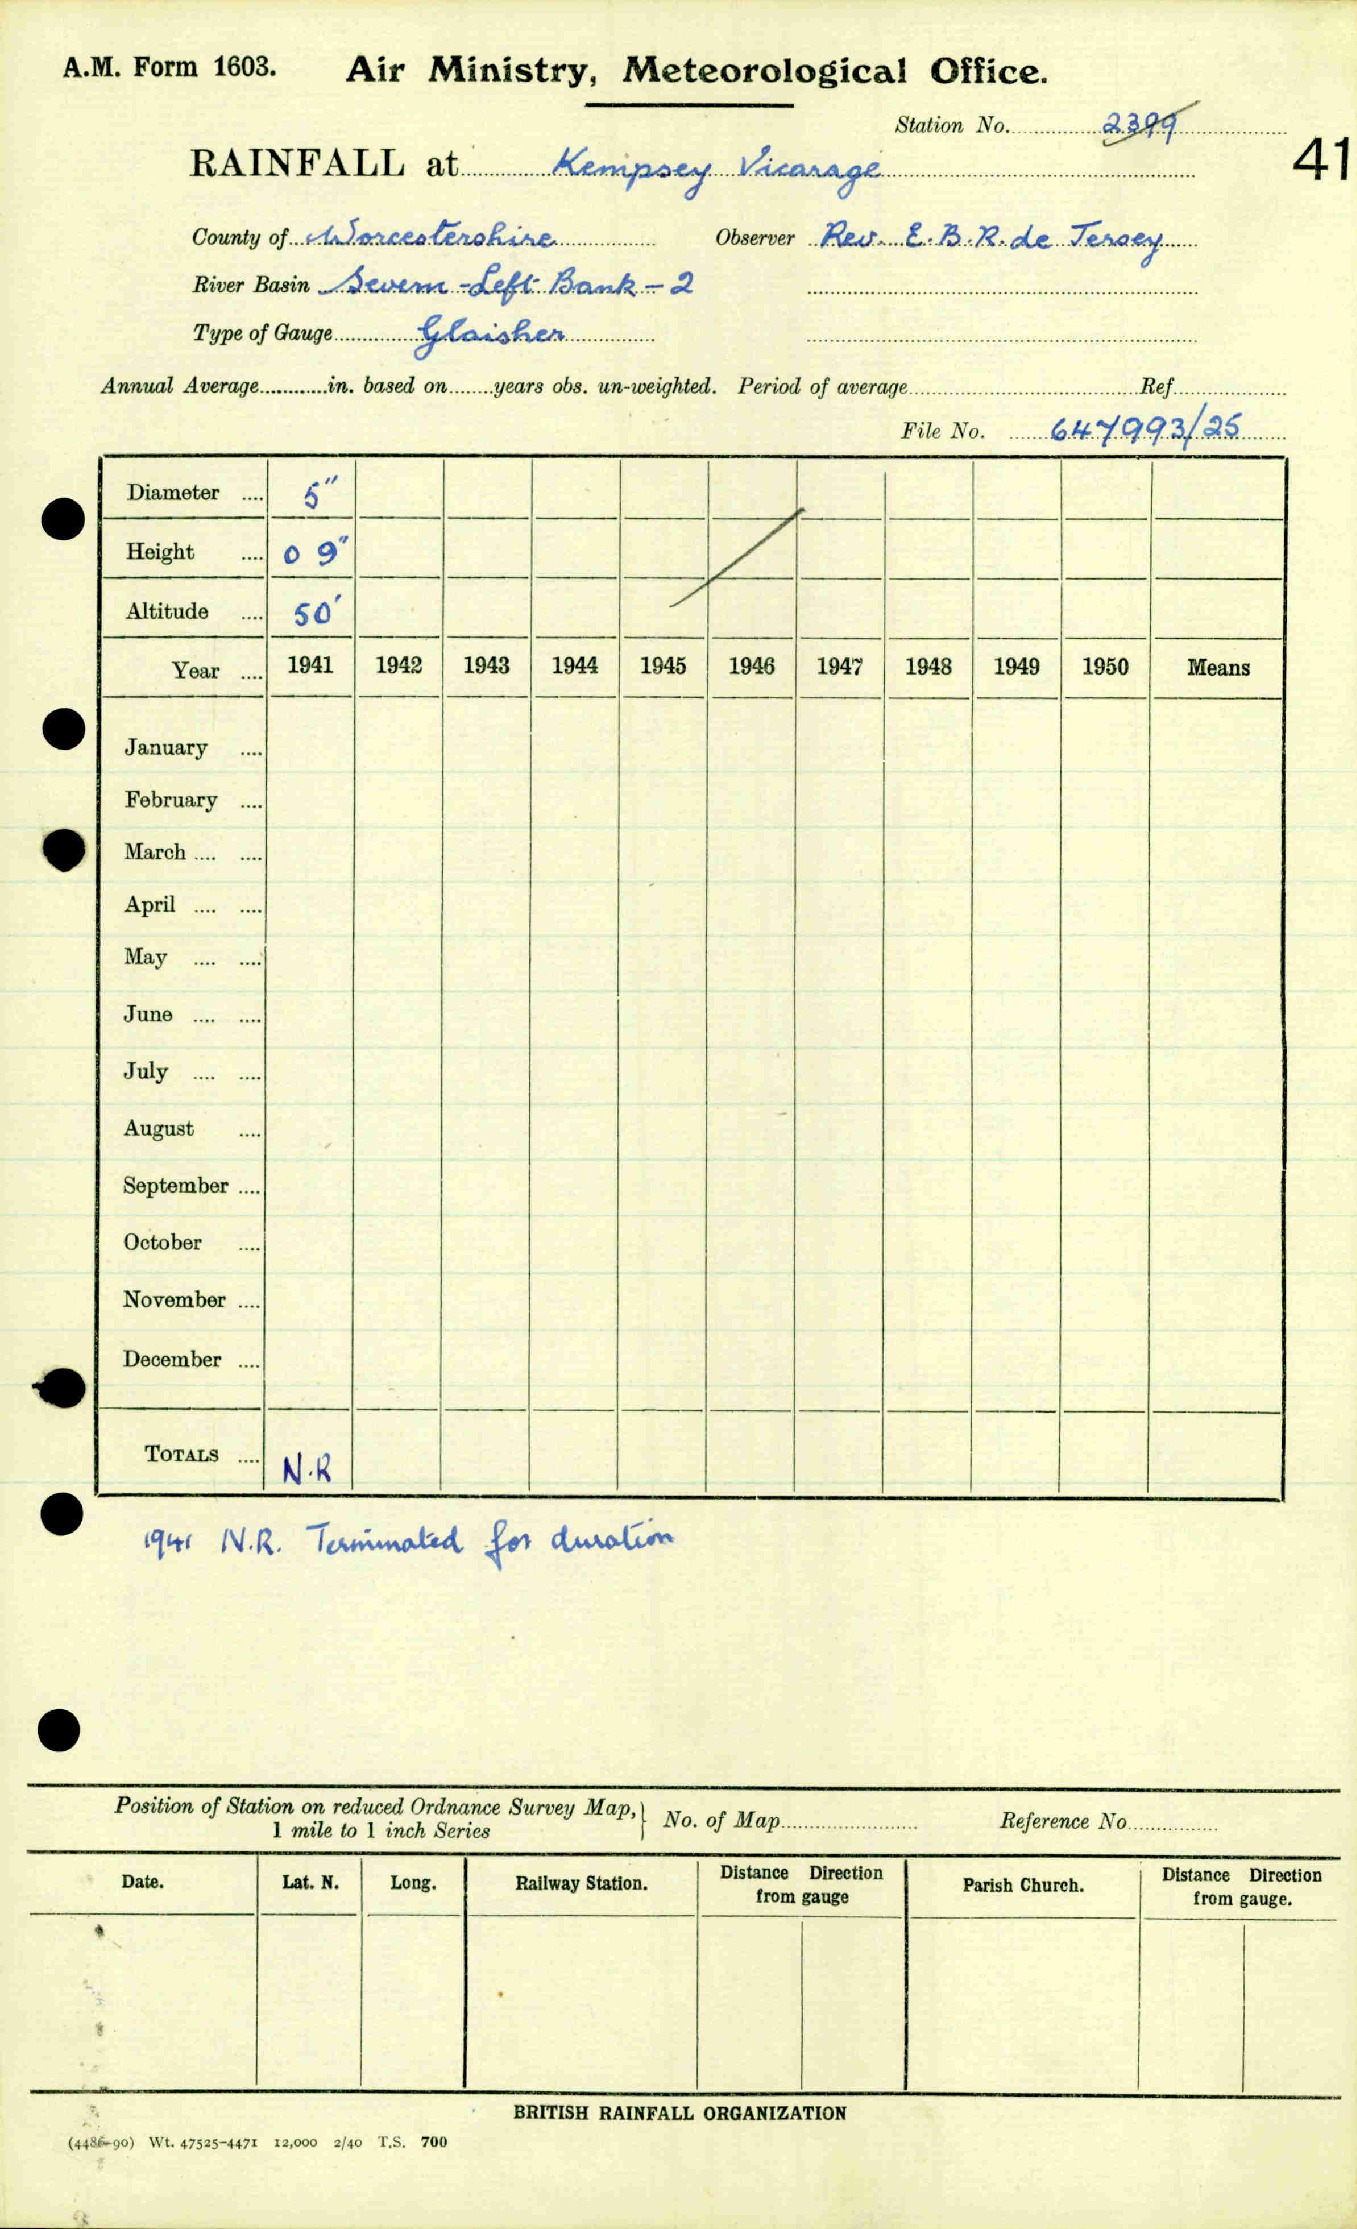 A.M. Form 1603. Air Ministry, Meteorological Office.
Station No. 2399
41
RAINFALL at Kempsey Vicarage
County of Worcestershire Observer Rev. E.B.R. de Jersey
River Basin Severn - Left Bank - 2
Type of Gauge Glaisher
Annual Average............in. based on........years obs. un-weighted. Period of average.......... Ref..........
File No. 647993/25
Diameter .... 5"
Height .... 0 9"
Altitude .... 50'
Year .... 1941 1942 1943 1944 1945 1946 1947 1948 1949 1950 Means
January ....
February ....
March .... ....
April .... ....
May .... ....
June .... ....
July .... ....
August ....
September ....
October ....
November ....
December ....
TOTALS .... N.R
1941 N.R. Terminated for duration
Position of Station on reduced Ordnance Survey Map, } No. of Map.......... Reference No..........
1 mile to 1 inch Series
Date. Lat. N. Long. Railway Station. Distance Direction from gauge Parish Church. Distance Direction from gauge.
BRITISH RAINFALL ORGANIZATION
(4486-90) Wt. 47525-4471 12,000 2/40 T.S. 700